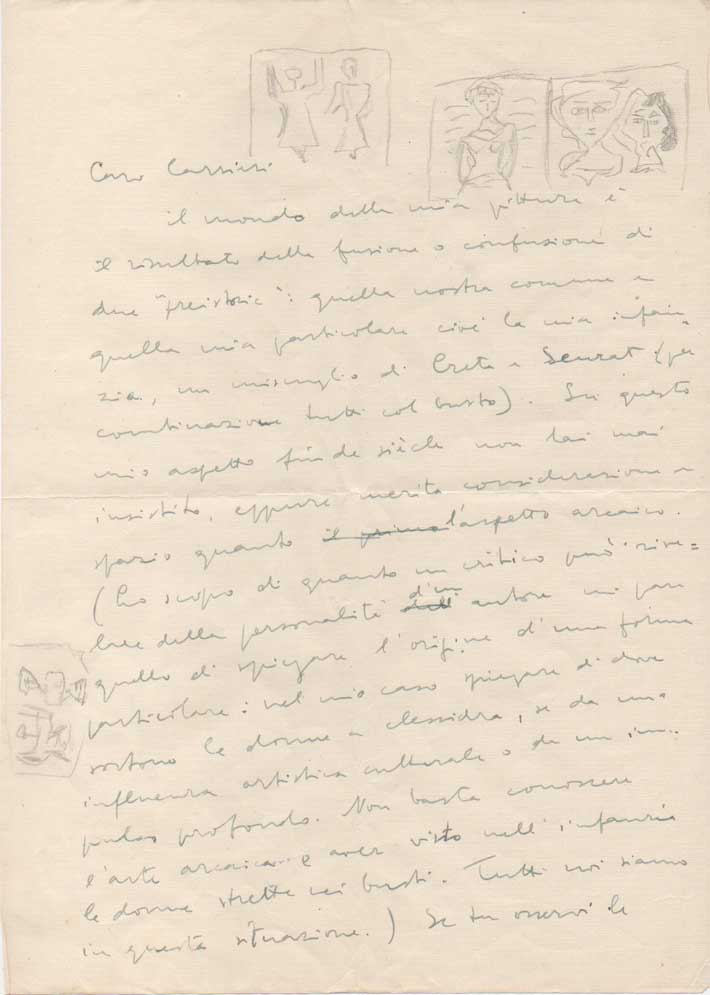 Caro Cassieri
il mondo della mia pittura è
il risultato della fusione o confusione di
due "preistorie": quella nostra comune e
quella mia particolare cioè la mia infan-
zia, un miscuglio di Creta e Seurat (per
combinazione tutti col busto). Su questo
mio aspetto fin de siècle non hai mai
insistito, eppure merita considerazione e
spazio quanto il primo l'aspetto arcaico.
(Lo scopo di quanto un critico può scrive=
re della personalità d'un autore mi pare
quello di spiegare l'origine d'una forma
particolare: nel mio caso spiegare di dove
sortono le donne a clessidra, se da un'
influenza artistica culturale o da un im-
pulso profondo. Non basta conoscere
l'arte arcaica e aver visto nell'infanzia
le donne strette nei busti. Tutti noi siamo
in questa situazione.) Se tu osservi le